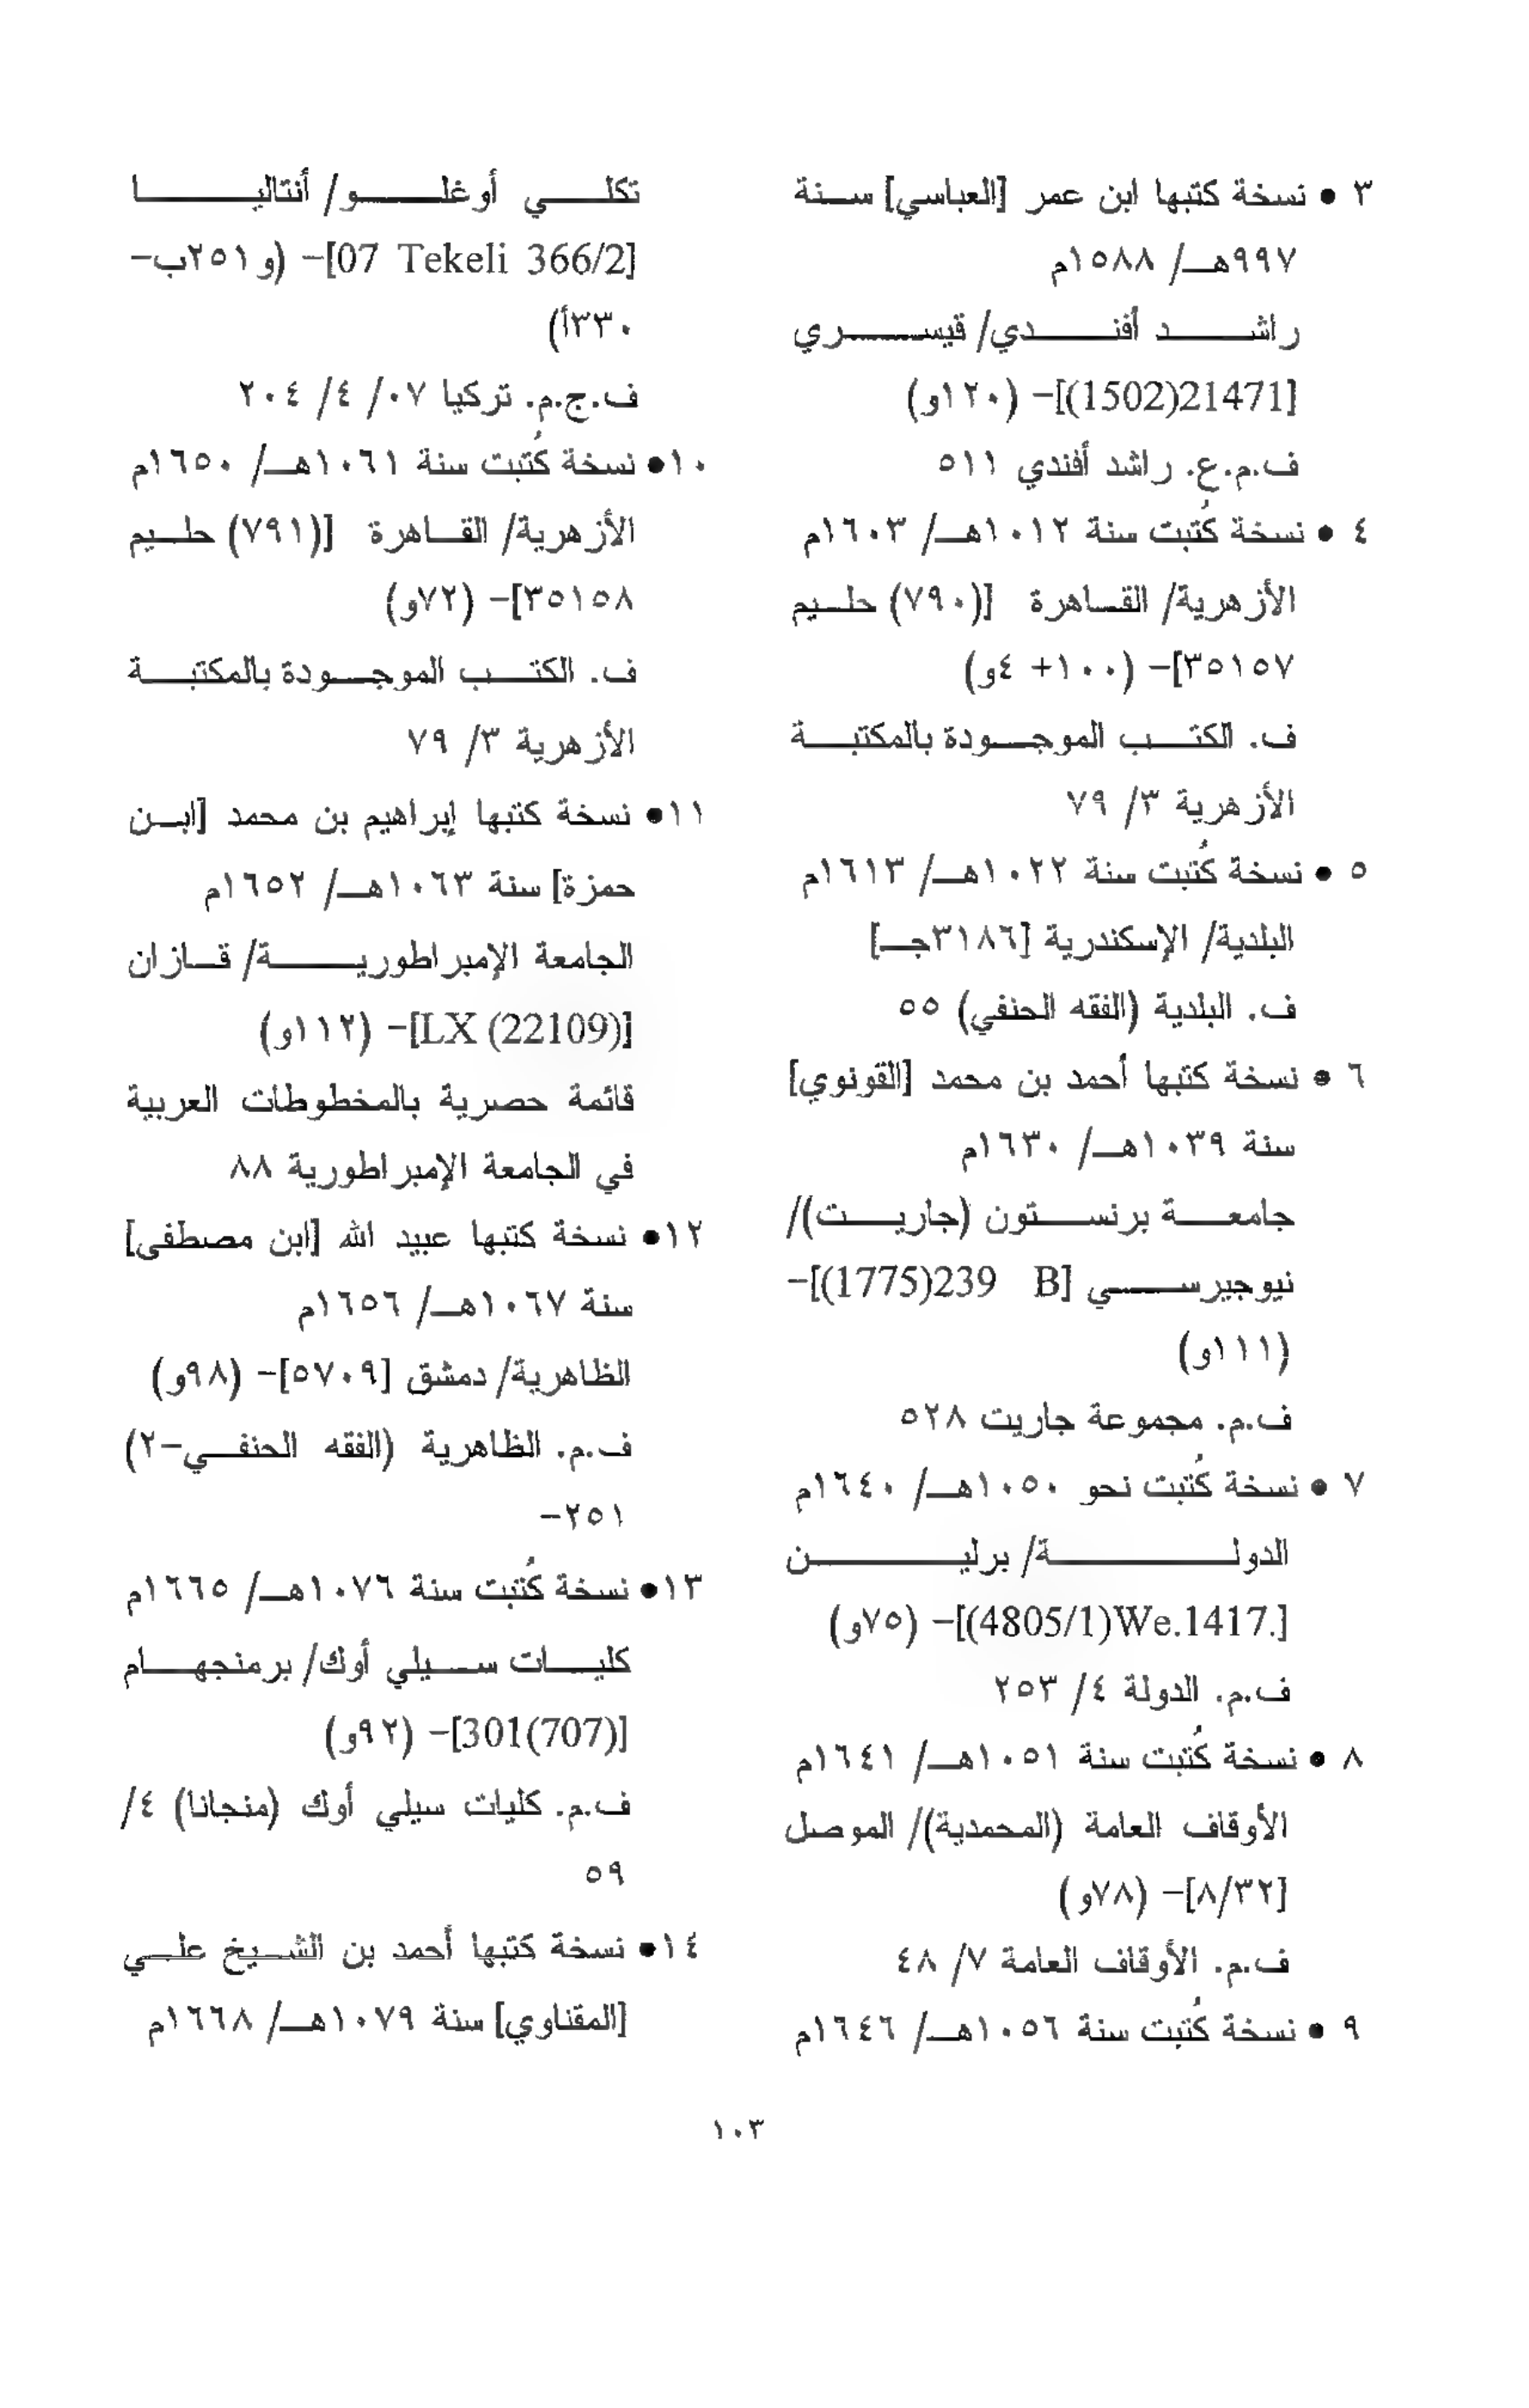 ٣ • نسخة كتبها ابن عمر [العباسي] سنة
٩٩٧هـ/ ١٥٨٨م
راشد أفندي/ قيسري
[21471(1502)]- (١٢٠و)
ف.م.ع. راشد أفندي ٥١١
٤ • نسخة كُتبت سنة ١٠١٢هـ/ ١٦٠٣م
الأزهرية/ القاهرة [(٧٩٠) حليم
٣٥١٥٧]- (١٠٠+ ٤و)
ف. الكتب الموجودة بالمكتبة
الأزهرية ٣/ ٧٩
٥ • نسخة كُتبت سنة ١٠٢٢هـ/ ١٦١٣م
البلدية/ الإسكندرية [٣١٨٦جـ]
ف. البلدية (الفقه الحنفي) ٥٥
٦ • نسخة كتبها أحمد بن محمد [القونوي]
سنة ١٠٣٩هـ/ ١٦٣٠م
جامعة برنستون (جاريت)/
نيوجيرسي [239 B(1775)]-
(١١١و)
ف.م. مجموعة جاريت ٥٢٨
٧ • نسخة كُتبت نحو ١٠٥٠هـ/ ١٦٤٠م
الدولة/ برلين
[We.1417.(4805/1)]- (٧٥و)
ف.م. الدولة ٤/ ٢٥٣
٨ • نسخة كُتبت سنة ١٠٥١هـ/ ١٦٤١م
الأوقاف العامة (المحمدية)/ الموصل
[٨/٣٢]- (٧٨و)
ف.م. الأوقاف العامة ٧/ ٤٨
٩ • نسخة كُتبت سنة ١٠٥٦هـ/ ١٦٤٦م
تكلي أوغلو/ أنتاليا
[07 Tekeli 366/2]- (و٢٥١ب-
٣٣٠أ)
ف.ج.م. تركيا ٠٧/ ٤/ ٢٠٤
١٠• نسخة كُتبت سنة ١٠٦١هـ/ ١٦٥٠م
الأزهرية/ القاهرة [(٧٩١) حليم
٣٥١٥٨]- (٧٢و)
ف. الكتب الموجودة بالمكتبة
الأزهرية ٣/ ٧٩
١١• نسخة كتبها إبراهيم بن محمد [ابن
حمزة] سنة ١٠٦٣هـ/ ١٦٥٢م
الجامعة الإمبراطورية/ قازان
[LX (22109)]- (١١٢و)
قائمة حصرية بالمخطوطات العربية
في الجامعة الإمبراطورية ٨٨
١٢• نسخة كتبها عبيد الله [ابن مصطفى]
سنة ١٠٦٧هـ/ ١٦٥٦م
الظاهرية/ دمشق [٥٧٠٩]- (٩٨و)
ف.م. الظاهرية (الفقه الحنفي-٢)
٢٥١-
١٣• نسخة كُتبت سنة ١٠٧٦هـ/ ١٦٦٥م
كليات سيلي أوك/ برمنجهام
[301(707)]- (٩٢و)
ف.م. كليات سيلي أوك (منجانا) ٤/
٥٩
١٤• نسخة كتبها أحمد بن الشيخ علي
[المقناوي] سنة ١٠٧٩هـ/ ١٦٦٨م
١٠٣